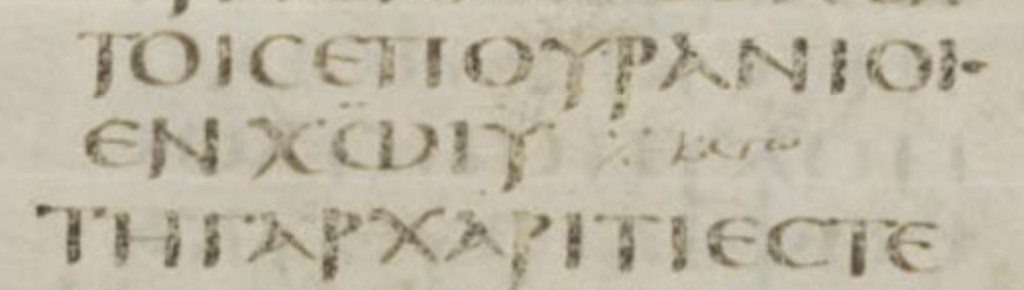 ΤΟΙϹΕΠΟΥΡΑΝΙΟΙ
ΕΝΧ̅Ω̅Ι̅Υ̅
ΤΗΓΑΡΧΑΡΙΤΙΕϹΤΕ